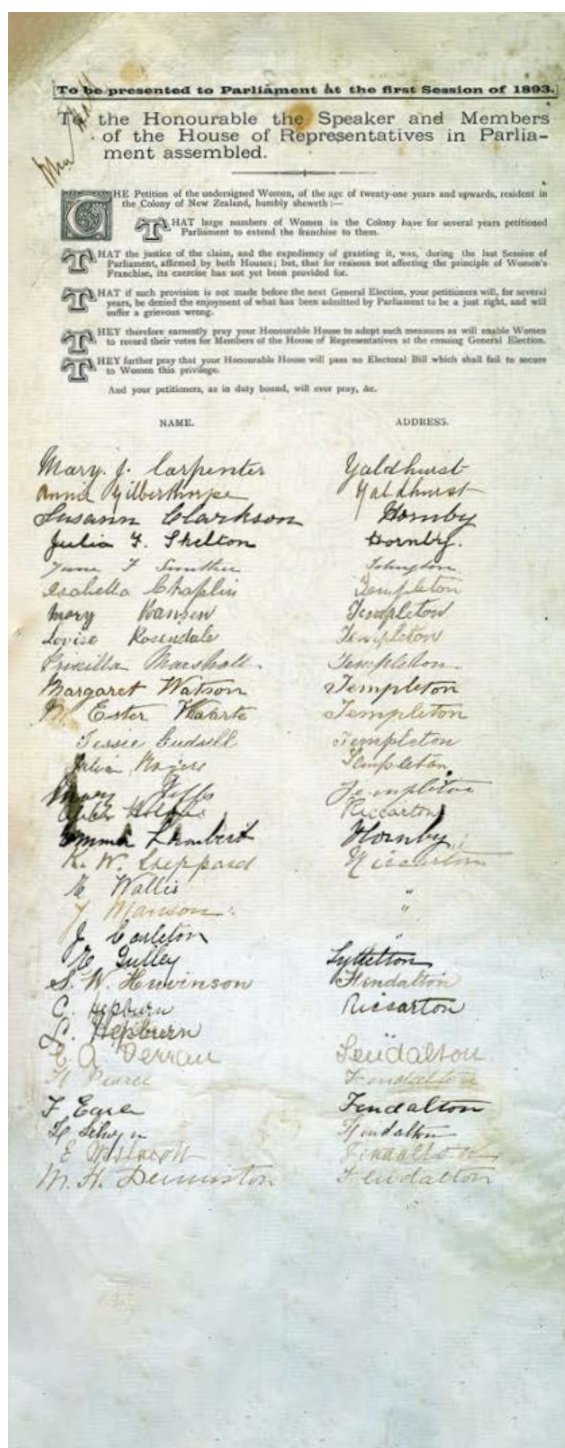 [To be presented to Parliament at the first Session of 1893.]
To the Honourable the Speaker and Members
of the House of Representatives in Parlia-
ment assembled.
THE Petition of the undersigned Women, of the age of twenty-one years and upwards, resident in
the Colony of New Zealand, humbly sheweth :—
THAT large numbers of Women in the Colony have for several years petitioned
Parliament to extend the franchise to them.
THAT the justice of the claim, and the expediency of granting it, was, during the last Session of
Parliament, affirmed by both Houses; but, that for reasons not affecting the principle of Women's
Franchise, its exercise has not yet been provided for.
THAT if such provision is not made before the next General Election, your petitioners will, for several
years, be denied the enjoyment of what has been admitted by Parliament to be a just right, and will
suffer a grievous wrong.
THEY therefore earnestly pray your Honourable House to adopt such measures as will enable Women
to record their votes for Members of the House of Representatives at the ensuing General Election.
THEY further pray that your Honourable House will pass no Electoral Bill which shall fail to secure
to Women this privilege.
And your petitioners, as in duty bound, will ever pray, &c.
NAME. ADDRESS.
Mary. J. Carpenter Yaldhurst
Annie Gilberthorpe Yaldhurst
Susann Clarkson Hornby
Julia F. Skelton Hornby.
Isabella Chaplin Templeton
Mary Hansen Templeton
Rosendale Templeton
Marshall. Templeton
Margaret Watson Templeton
M Ester Templeton
Templeton
Templeton
Mary Templeton
Riccarton
Emma Lambert Hornby
K. W. Sheppard Riccarton
Wallis "
Manson "
J Carleton
Gulley Lyttelton
S. W. Fendalton
C. Hepburn Riccarton
L. Hepburn "
C. A. Fendalton
Pearce Fendalton
F Earle Fendalton
Selwyn Fendalton
E Fendalton
M. H. Denniston Fendalton